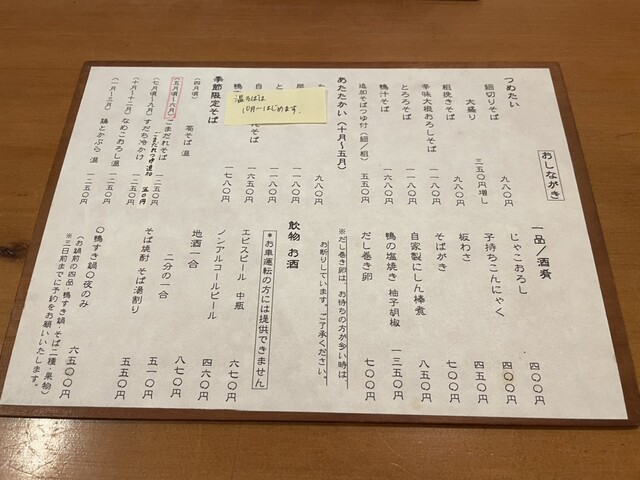 おしながき
つめたい
細切りそば 九八〇円
大盛り 三五〇円増し
粗挽きそば 九八〇円
辛味大根おろしそば 一一八〇円
とろろそば 一一八〇円
鴨汁そば 一六八〇円
追加そばつゆ付(細/粗) 五五〇円
あたたかい(十月〜五月)
九八〇円
一一八〇円
一一八〇円
一六五〇円
一七八〇円
温そばは
10月〜はじめます。
季節限定そば
(四月頃)
葱そば 温
(五月頃〜六月)
ごまだれそば 一二五〇円
ごまだれつけ追加 五〇円
(七月頃〜九月)
すだち冷かけ 一二五〇円
(十月〜十二月)
なめこおろし温 一二五〇円
(一月〜三月)
鶏とかぶら 温 一二五〇円
一品/酒肴
じゃこおろし 四〇〇円
子持ちこんにゃく 四〇〇円
板わさ 四五〇円
そばがき 七〇〇円
自家製にしん棒煮 八五〇円
鴨の塩焼き 柚子胡椒 一三五〇円
だし巻き卵 七〇〇円
※だし巻き卵は、お待ちの方が多い時は
お断りしています。ご了承ください。
飲物 お酒
※お車運転の方には提供できません
エビスビール 中瓶 六七〇円
ノンアルコールビール 四六〇円
地酒一合 八七〇円
二分の一合 五一〇円
そば焼酎 そば湯割り 五五〇円
〇鴨すき鍋〇夜のみ 六五〇〇円
(お鍋前の四品・鴨すき鍋・そば二種・果物)
※三日前までに予約をお願いいたします。